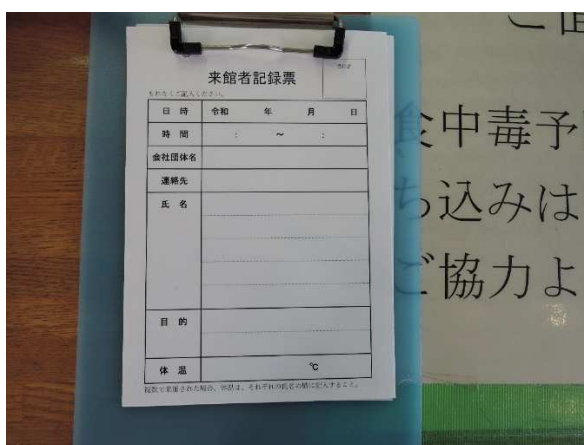 来館者記録票
もれなくご記入ください。
日 時 令和 年 月 日
時 間 : ～ :
会社団体名
連絡先
氏 名
目 的
体 温 ℃
複数で来館された場合、体温は、それぞれの氏名の横に記入すること。
食中毒予
ち込みは
ご協力よ